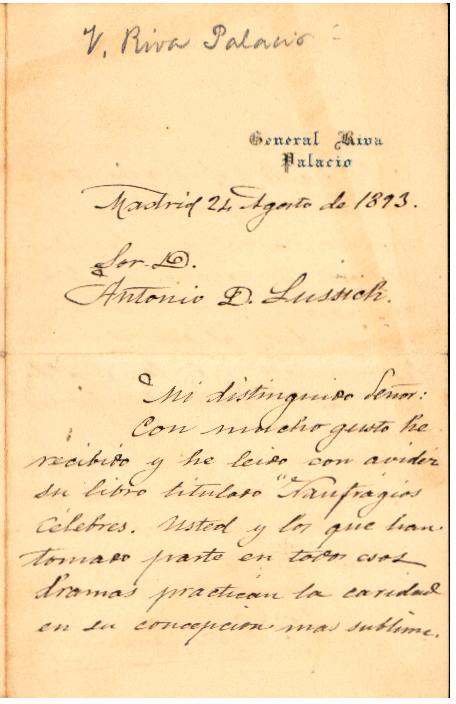 V. Riva Palacio
General Riva
Palacio
Madrid 24 Agosto de 1893.
Sor. D.
Antonio D. Lussich.
Mi distinguido Señor:
Con mucho gusto he
recibido y he leido con avidéz
su libro titulado "Naufrágios
Célebres. Usted y los que han
tomado parte en todos esos
dramas practican la caridad
en su concepción mas sublime.